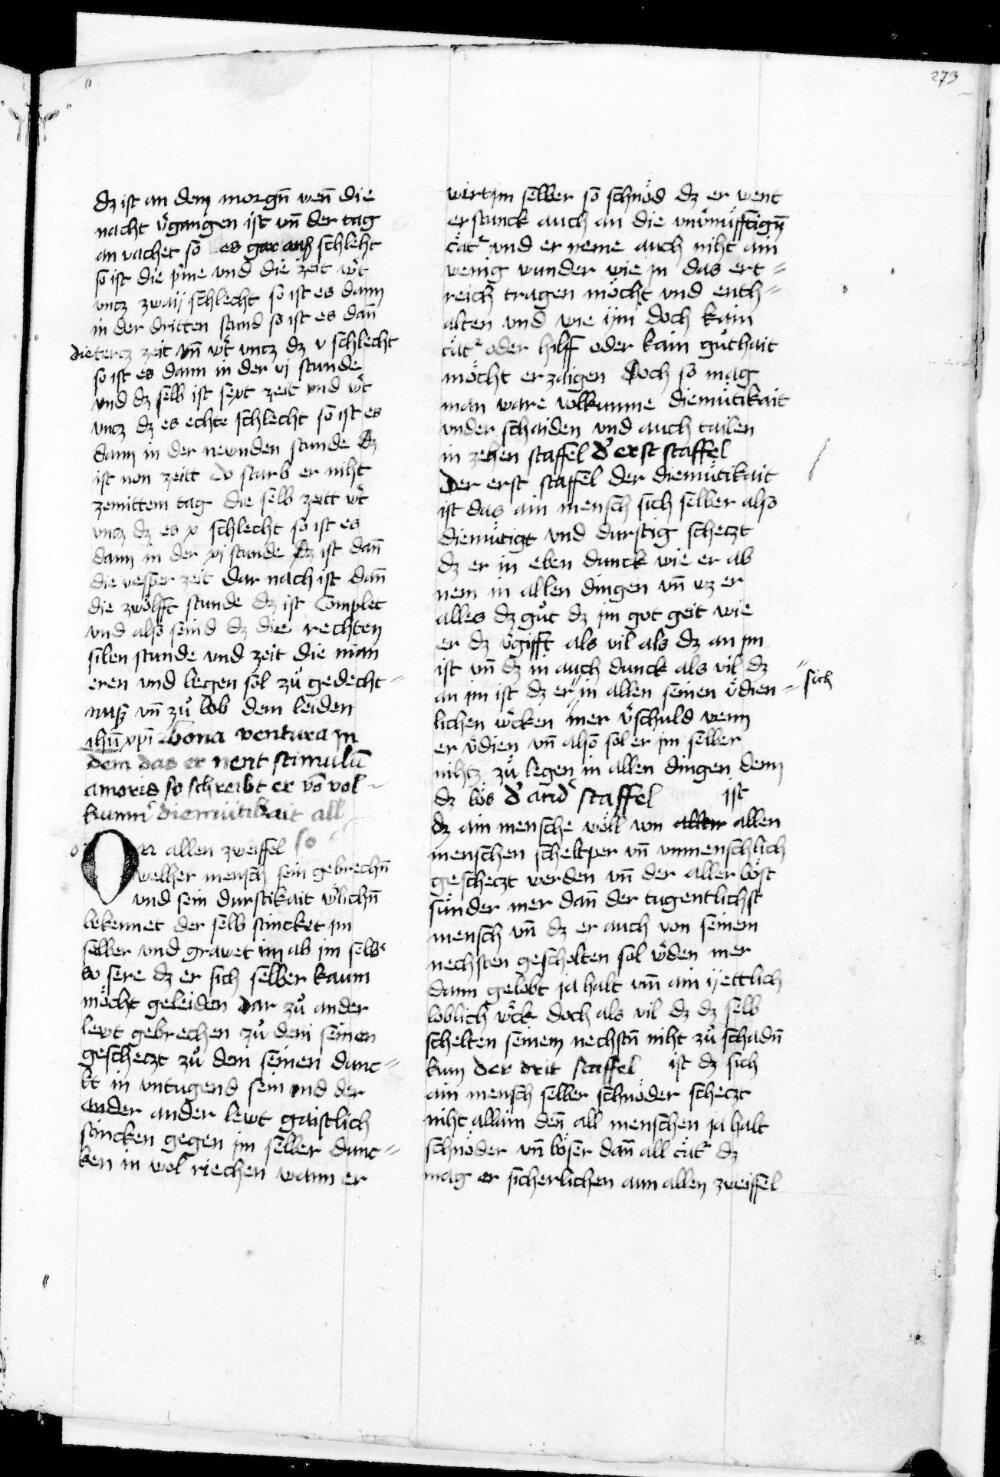 273
dz ist an dem morgn̄ wen̄ die
nacht v̈gangen ist vn̄ der tag
an vachet so es gar auf schleht
so ist die p'me vnd die zeit wt
vncz zwaij schlecht so ist es dann
in der dritten stund so ist es dan̄
die tercz zeit vn̄ wt vncz dz v schlecht
so ist es dann in der vi stunde
vnd dz selb ist sext zeit vnd wt
vncz dz es echte schlecht so ist es
dann in der newnden stunde dz
ist non zeitt do starb er niht
zemittem tag die selb zeit wt
vncz dz es x schlecht so ist es
dann in der xi stunde dz ist dan̄
die vesper zeit dar nach ist dan̄
die zwölfft stunde dz ist Complet
vnd also seind dz die rechten
silen stunde vnd zeit die man
eren vnd legen sol zů gedecht-
nuß vn̄ zů lob dem leiden
ihū xp̄i Bona ventura in
dem das er nent stimulū
amoris so schreibt er vō vol-
kumn' diemütikait all
so
On allen zweiffel
welher mensch sein gebrechn̄
vnd sein durftikait v̈lichn̄
bekennet der selb stincket im
selber vnd grawet im ab im selb'
so sere dz er sich selber kaum
möcht geleiden dar zů ander
lewt gebrechen zů dem seinen
geschecz zů dem seinen dunc-
kt in vntugend sein vnd der
ander ander lewt gaistlich
stincken gegen im selber dunc-
ken in wol riechen wann er
wirt im selber so schnöd dz er went
er stunck auch an die vnv̈nüfftign̄
cät' vnd er neme auch niht ain
wenig wunder wie in das ert-
reich tragen möcht vnd enth-
alten vnd wie im doch kain
cät' oder hilff oder kain gůthait
möcht erzaigen Doch so mag
man ware volkumne diemütikait
vnder schaiden vnd auch tailen
in zehen staffel d' erst staffel
Der erst staffel der diemütikait
ist das ain mensch sich selber also
diemütigt vnd durftig scheczt
dz er in eben dunck wie er ab
nem in allen dingen vn̄ vz er
alles dz gůt dz im got geit wie
er dz v̈gifft als vil als dz an im
ist vn̄ dz in auch dunck als vil dz
an im ist dz er in allen seinen v̈dien- sich
lichen wẅcken mer v̈schuld wenn
er v̈dien vn̄ also sol er im selber
nihtz zů legen in allen dingen denn
dz bös d' and' staffel ist
dz ain mensche wöll von allen allen
menschen scheltper vn̄ vnmenschlich
gescheczt werden vn̄ der aller böst
sünder mer dan̄ der tugentlichst
mensch vn̄ dz er auch von seinem
nechsten gescholten sol wẅden mer
dann gelobt ja halt vm̄ ain ijettlich
löblich wẅck doch als vil dz dz selb
schelten seinem nechstn̄ niht zů schadn̄
kum der drit staffel ist dz sich
ain mensch selber schnöder scheczt
niht allain den̄ all menschen ja halt
schnöder vn̄ böser dan̄ all cät' dz
mag er sicherlichen aun allen zweiffel